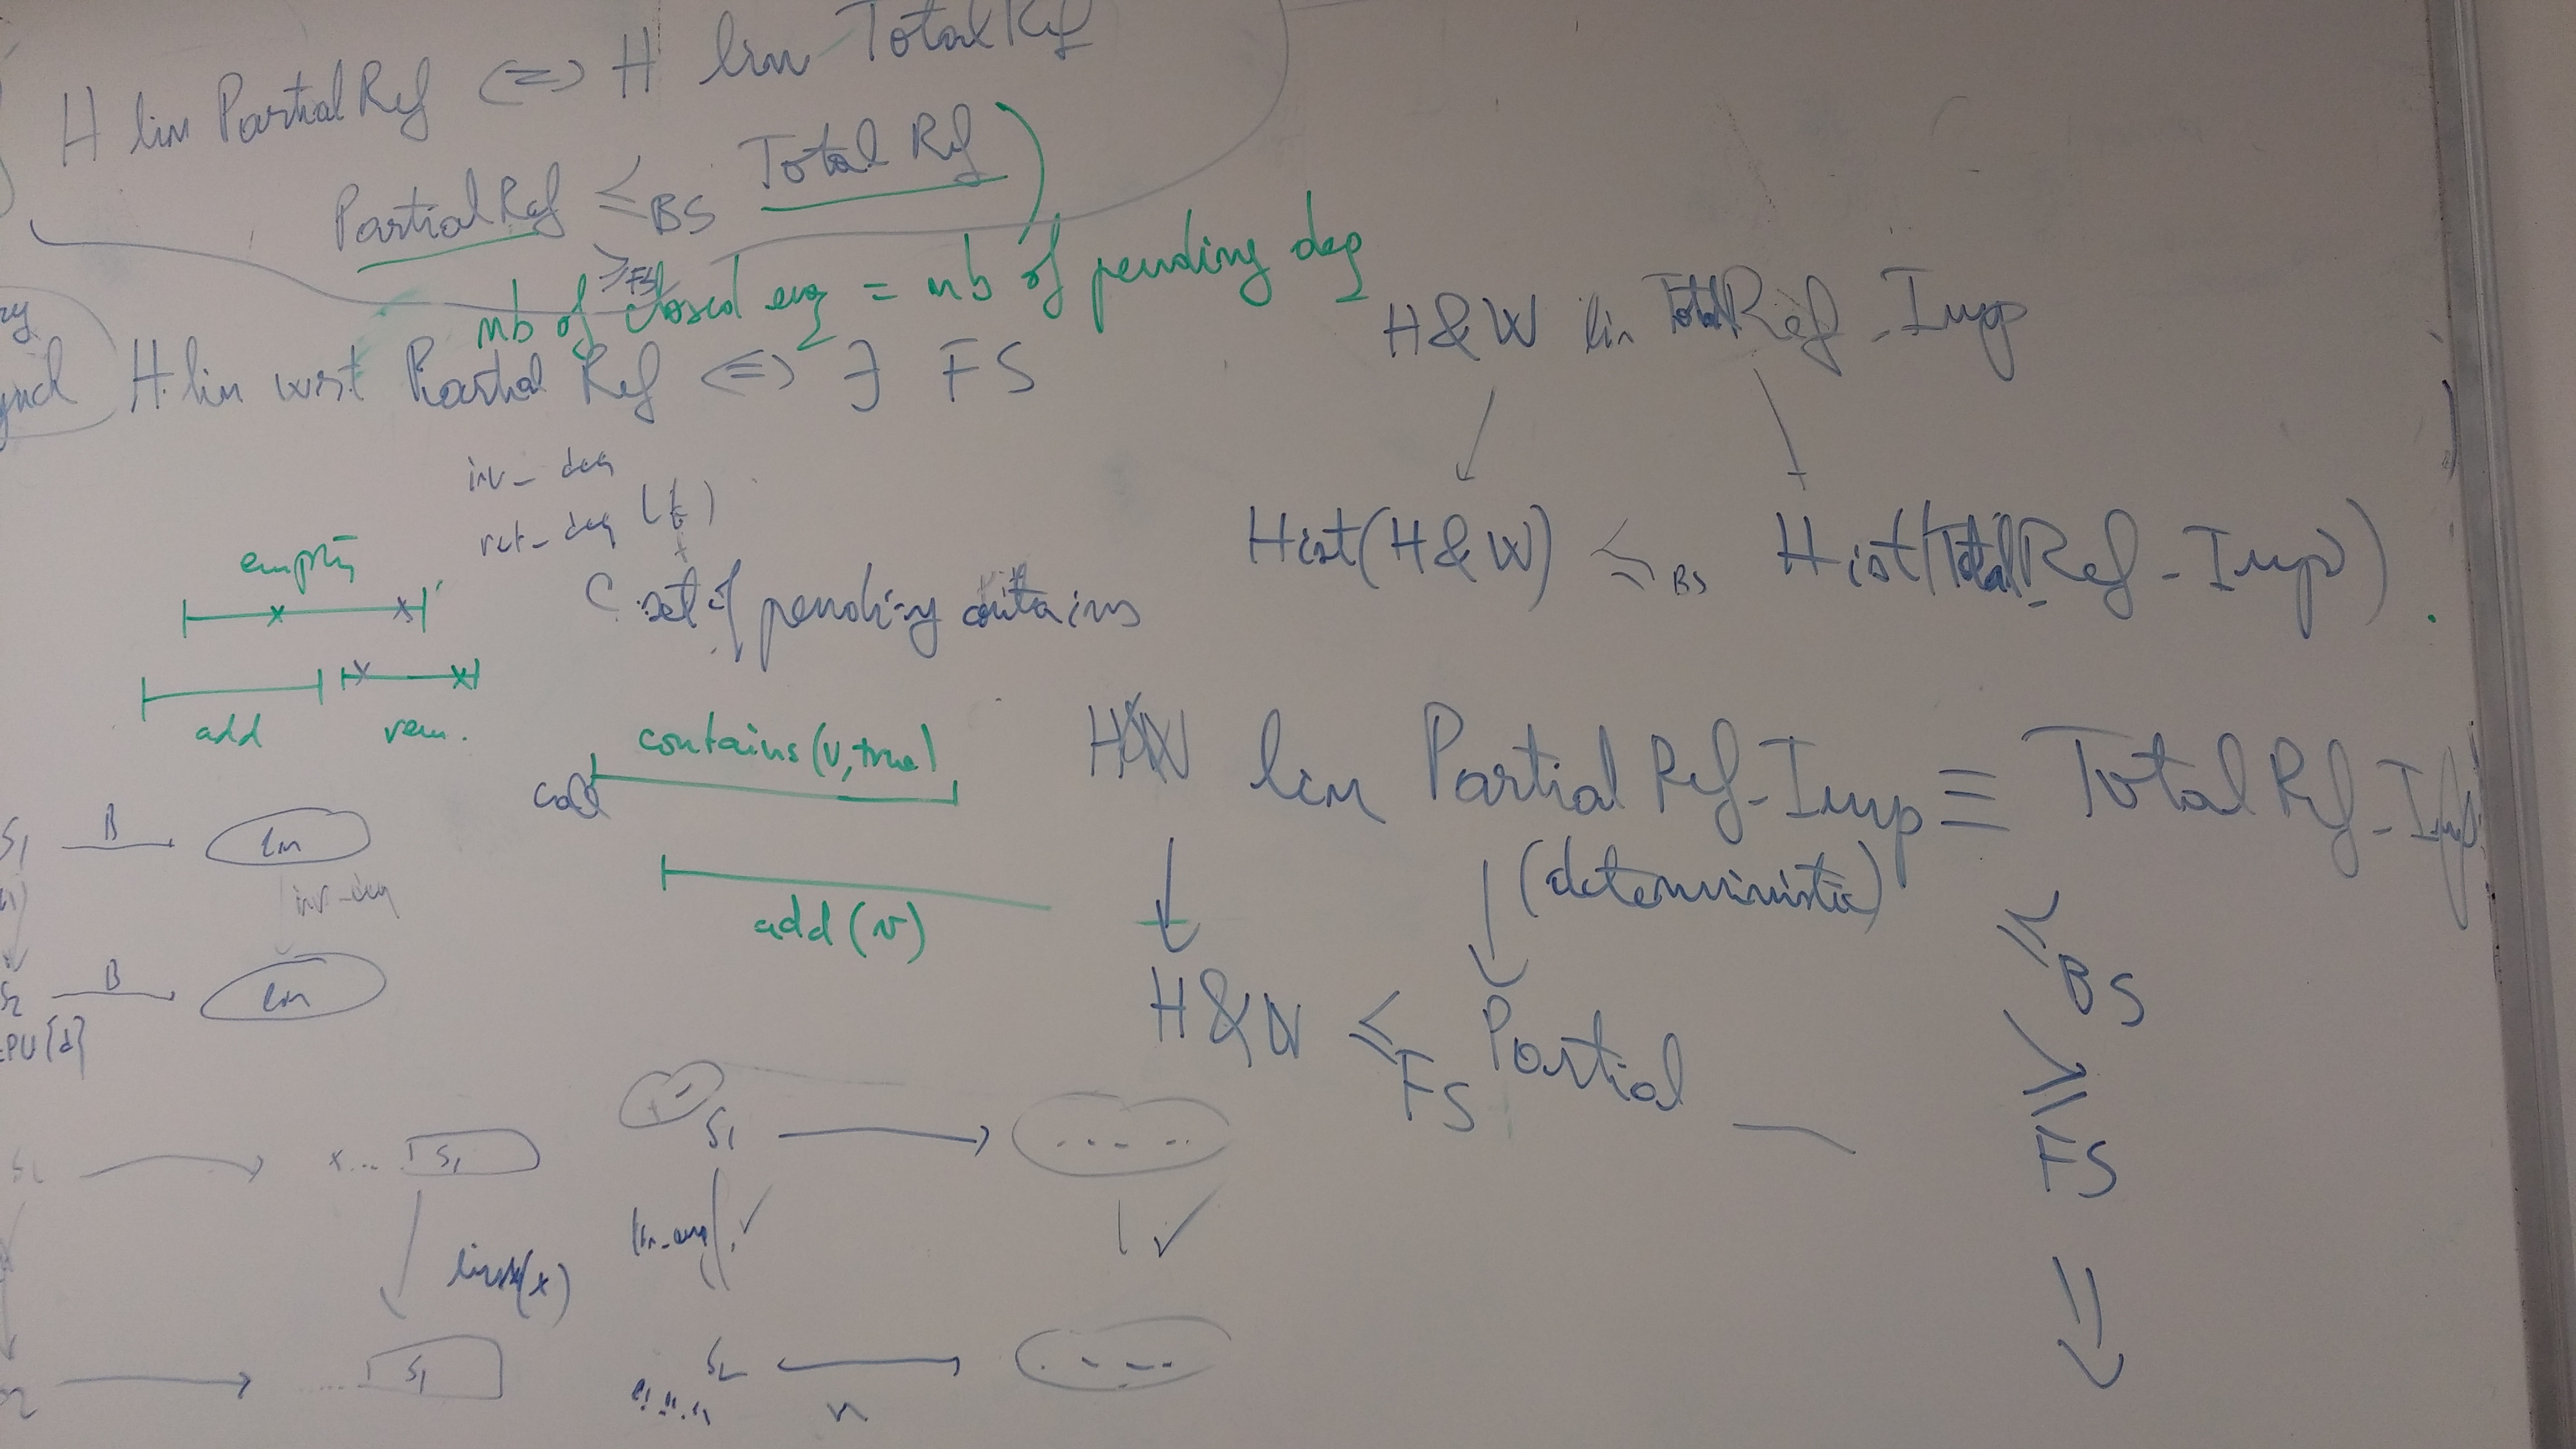 H lin Partial Ref <=> H lin Total Ref
Partial Ref ≤BS Total Ref
≥FS
nb of closed enq = nb of pending deq
H lin wrt Partial Ref <=> ∃ FS
inv_deq
ret_deq
empty
set of pending contains
add rem.
contains(v, true)
call
add(v)
S1 B lin
inv_enq
S2 B lin
S2 x... S1
lin(x)
..... S1
S1 .. - - ..
lin_enq ✓ ✓
S2 . - - -
n
H&W lin Total Ref_Imp
Hist(H&W) ≤BS Hist(Total Ref_Imp)
H&W lin Partial Ref_Imp ≡ Total Ref_Imp
(deterministic)
H&W ≤FS Partial
≤BS
≥FS